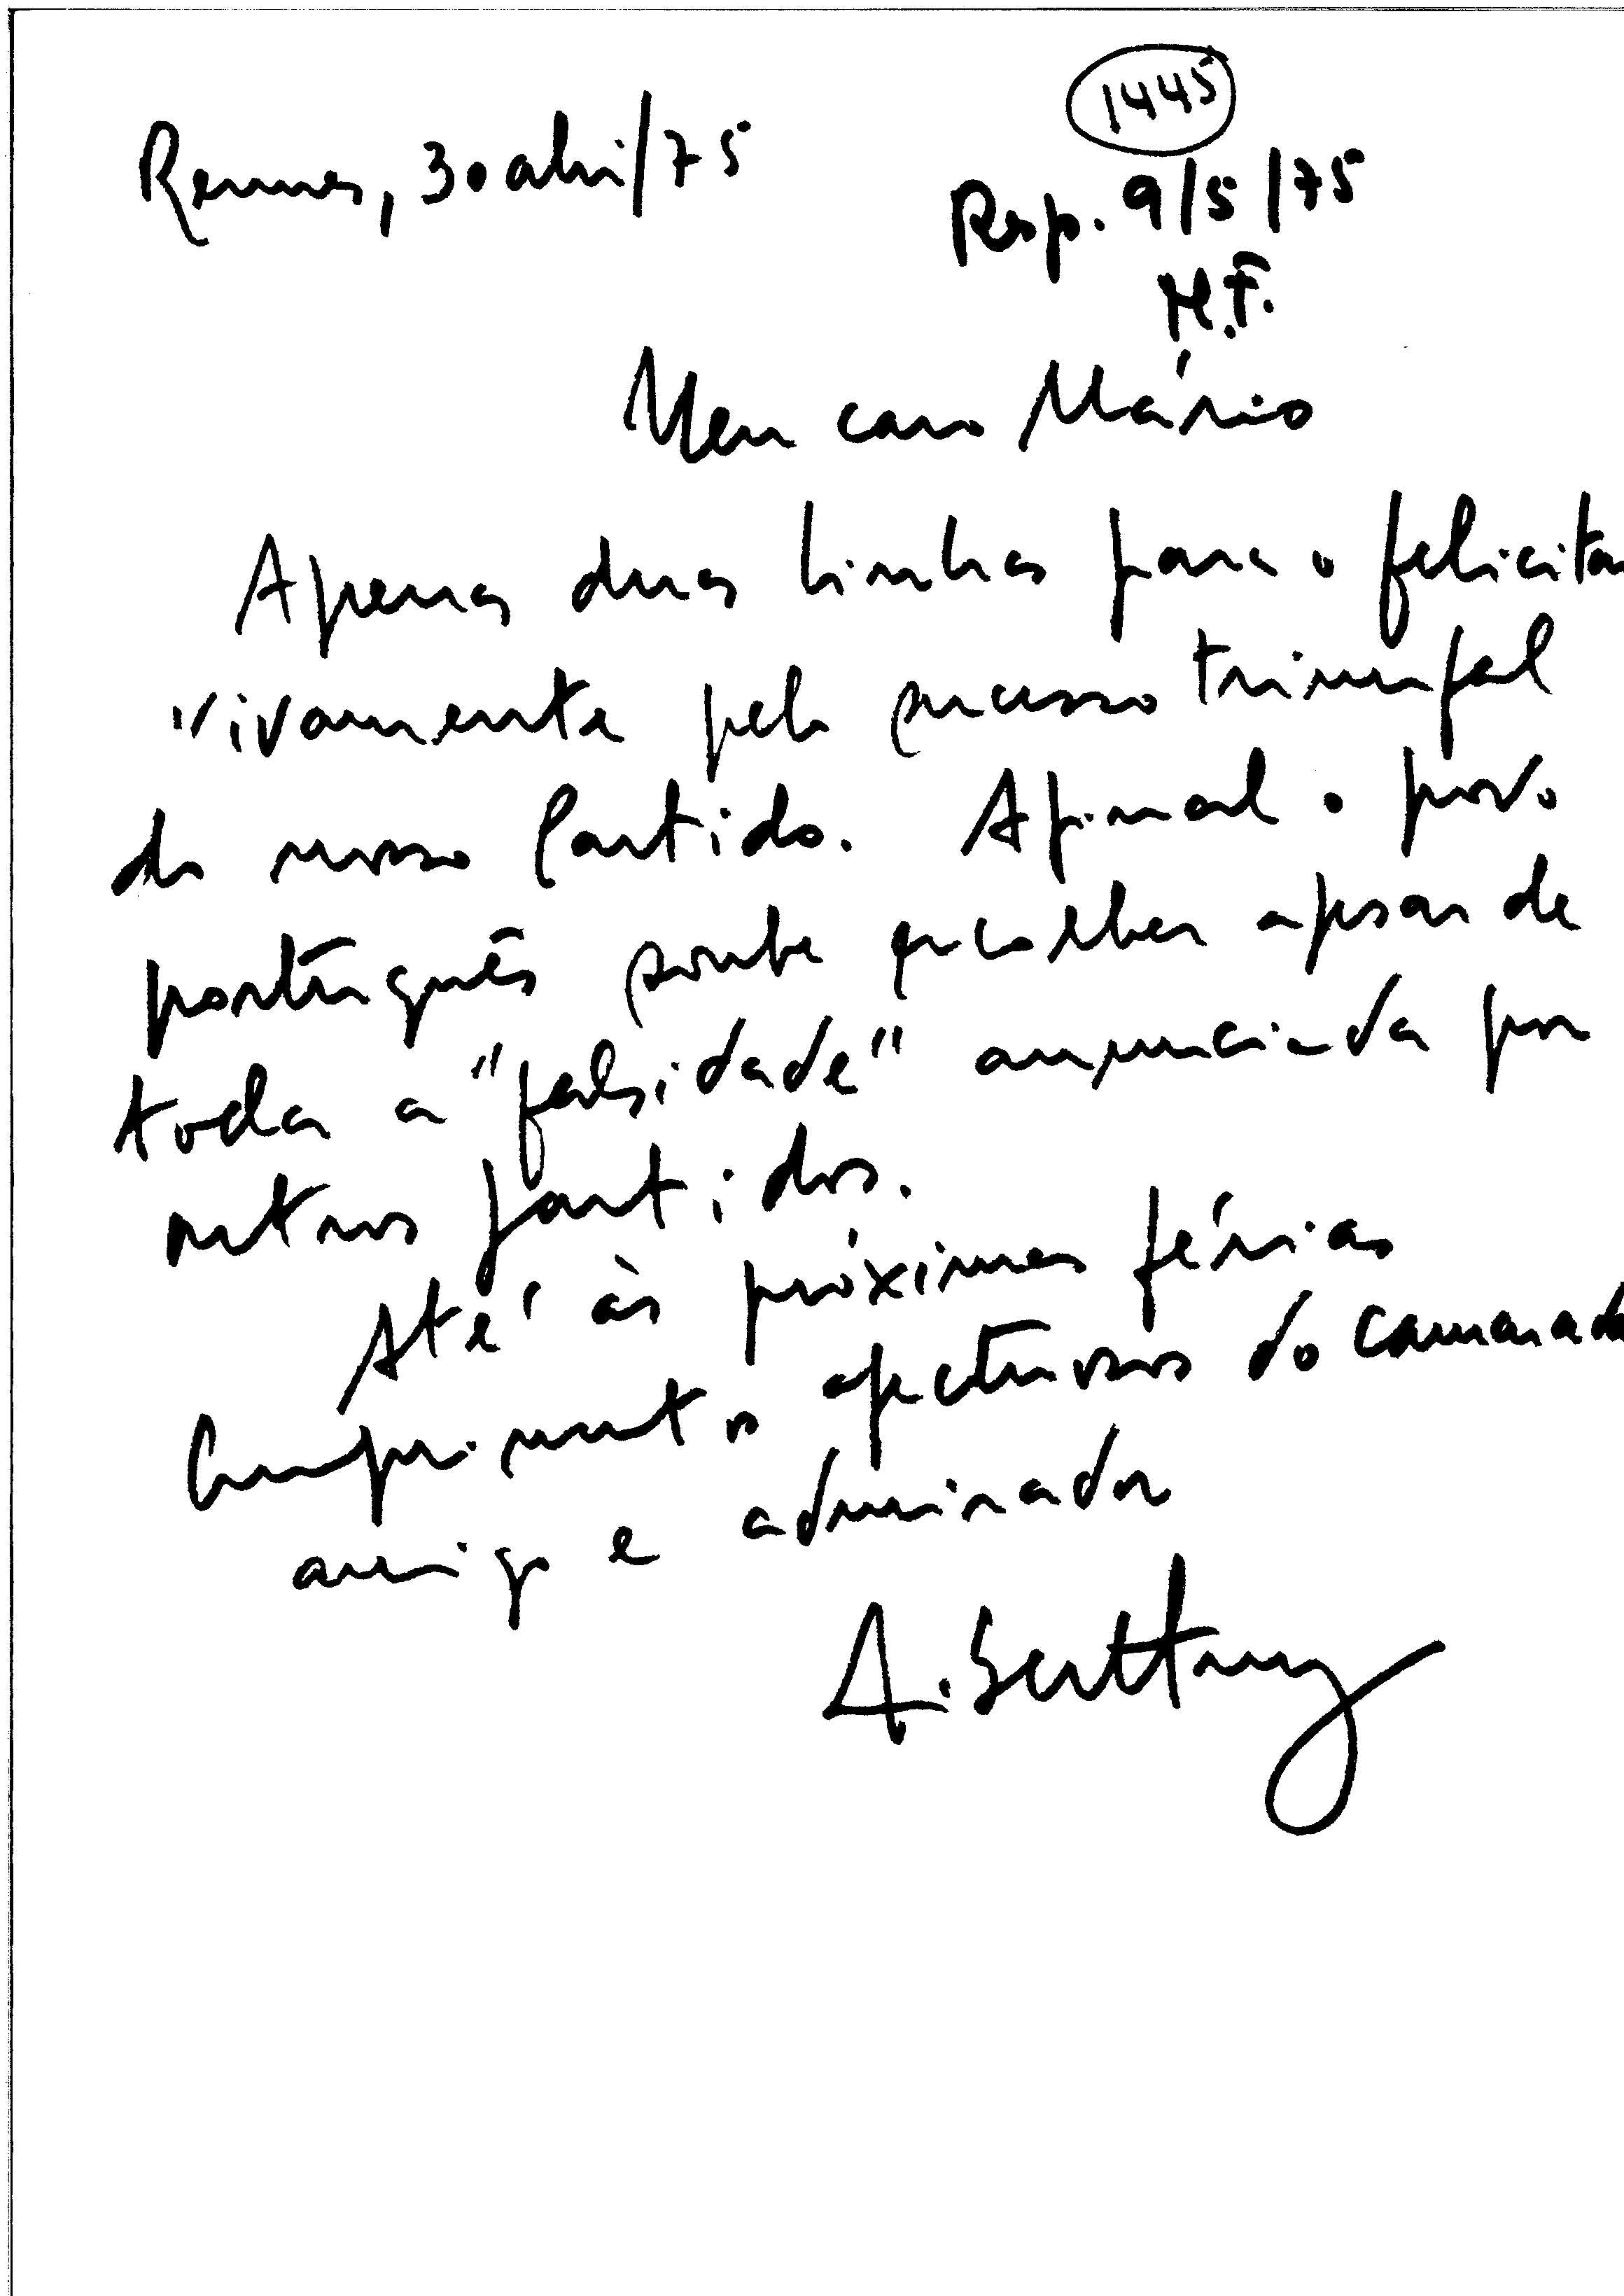 1445
Rennes, 30 abri/75
Resp. 9/5/75
M.F.
Meu caro Mário
Apenas duas linhas para o felicitar
vivamente pelo sucesso triunfal
do nosso Partido. Afinal o povo
português soube escolher apesar de
toda a "falsidade" anunciada por
outros partidos.
Até às próximas férias
Cumprimentos afectuosos do camarada
amigo e admirador